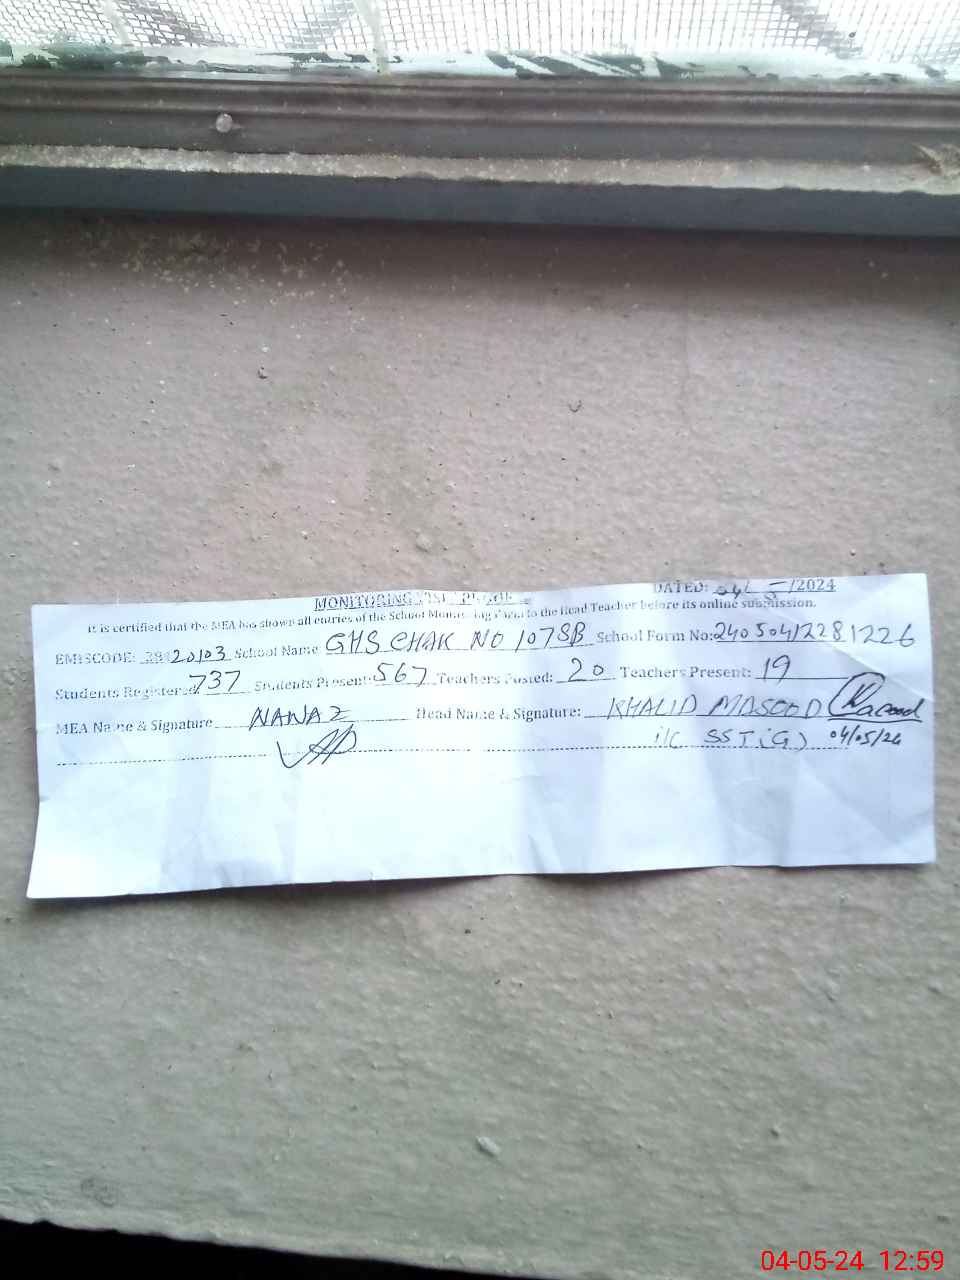 MONITORING VISIT PROOF DATED: 04/ 5 /2024
It is certified that the MEA has shown all entries of the School Monitoring Form to the Head Teacher before its online submission.
EMISCODE: 38420103 School Name: GHS CHAK NO 107SB School Form No: 24050412281226
Students Registered: 737 Students Present: 567 Teachers Posted: 20 Teachers Present: 19
MEA Name & Signature NAWAZ Head Name & Signature: KHALID MASOOD Masood
i/c SST(G) 04/05/24
04-05-24 12:59